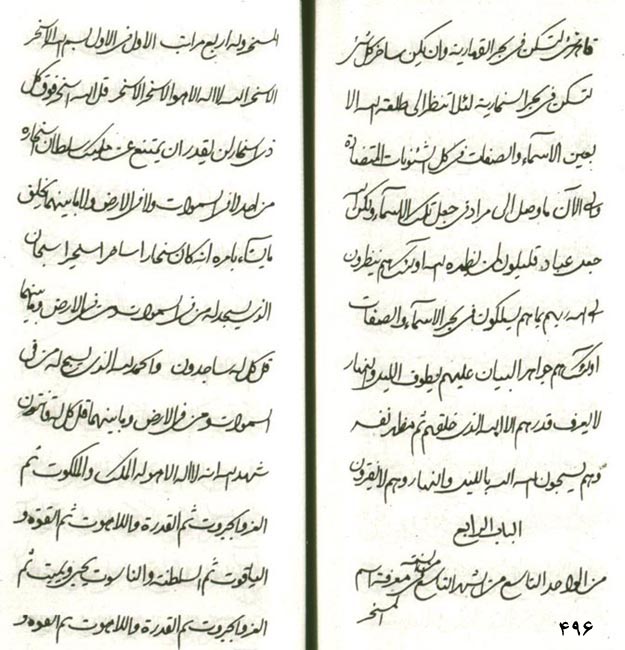 لتكن فى بحر القهارية وان يكن ساخر كل شئ
لتكن فى بحر السخارية لئلا تنظر الى طلعة الله الا
بعين الاسماء والصفات فى كل الشئونات المتضادة
والى الآن ما وصل الى مرادى جعل تلك الاسماء ولكن
جعل عباد قليلون لمن يظهره الله اولئك هم ينظرون
الى الله ربهم بما هم يسلكون فى بحر الاسماء والصفات
اولئك هم جواهر البيان عليهم يطوف الليل والنهار
لا يعرف قدرهم الا الله الذى خلقهم ثم مظهر نفسه
وهم يسبحون الله بالليل والنهار وهم لا يفترون
الباب الرابع
من الواحد التاسع من الشهر التاسع فى معرفة اسم
المسخر
۴۹۶
المسخر وله اربع مراتب الاول فى الاول بسم الله الاسخر
الاسخر الله لا اله الا هو الاسخر الاسخر قل الله اسخر فوق كل
ذى اسخار لن يقدر ان يمتنع عن مليك سلطان اسخاره
من احد لا فى السموات ولا فى الارض ولا ما بينهما يخلق
ما يشاء بامره انه كان سخارا ساخرا سخيرا سبحان
الذى يسجد له من فى السموات ومن فى الارض وما بينهما
قل كل له ساجدون والحمد لله الذى يسبح له من فى
السموات ومن فى الارض وما بينهما قل كل له قانتون
شهد الله انه لا اله الا هو له الملك والملكوت ثم
العز والجبروت ثم القدرة واللاهوت ثم القوة و
الياقوت ثم السلطنة والناسوت يحيى ويميت ثم
العز والجبروت ثم القدرة واللاهوت ثم القوة و